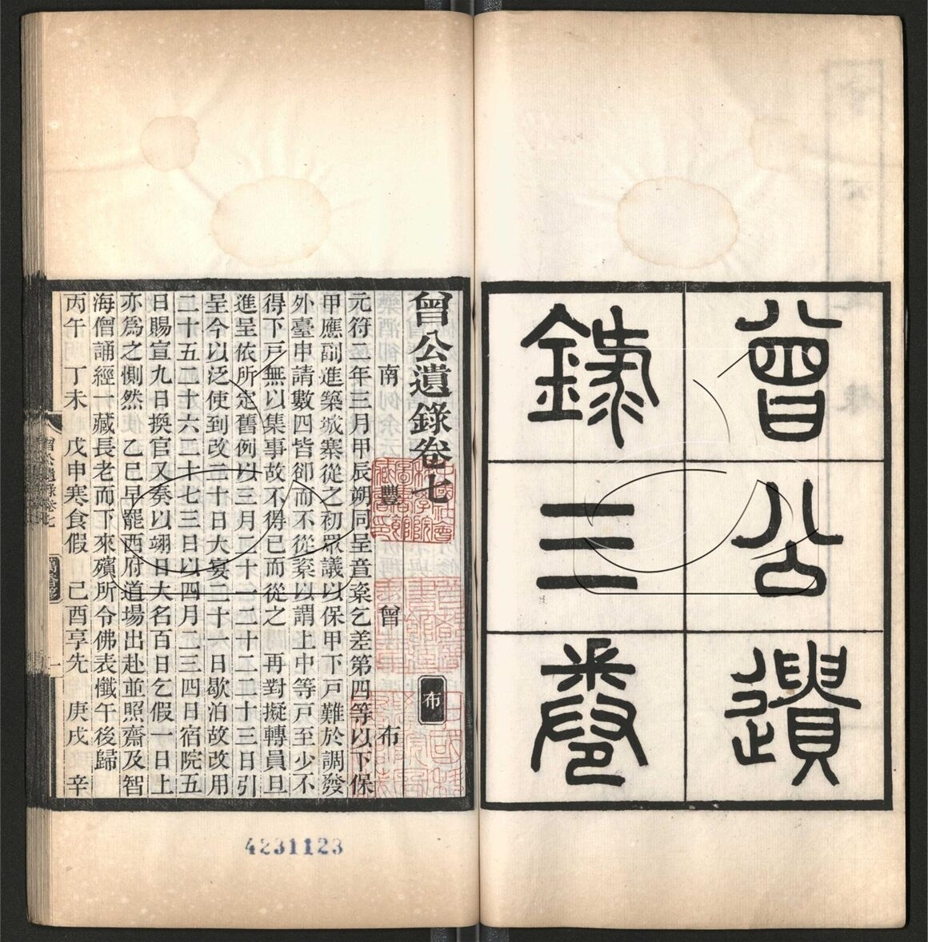 曾公遺
錄三卷
曾公遺錄卷七
南豐曾布
元符二年三月甲辰朔同呈章楶乞差第四等以下保
甲應副進築城寨從之初眾議以保甲下戶難於調發
外臺申請數四皆卻而不從楶以謂上中等戶至少不
得下戶無以集事故不得已而從之 再對擬轉員旦
進呈依所定舊例以三月二十一二十二二十三日引
呈今以泛使到改三十日大宴三十一日歇泊故改用
二十五二十六二十七三日以四月二三四日宿院五
日賜宣九日換官又奏以翊日大名百日乞假一日上
亦為之惻然 乙巳早罷西府道場出赴並照齋及智
海僧誦經一藏長老而下來殯所令佛表懺午後歸
丙午 丁未 戊申寒食假 己酉享先 庚戌 辛
布
一
4231123